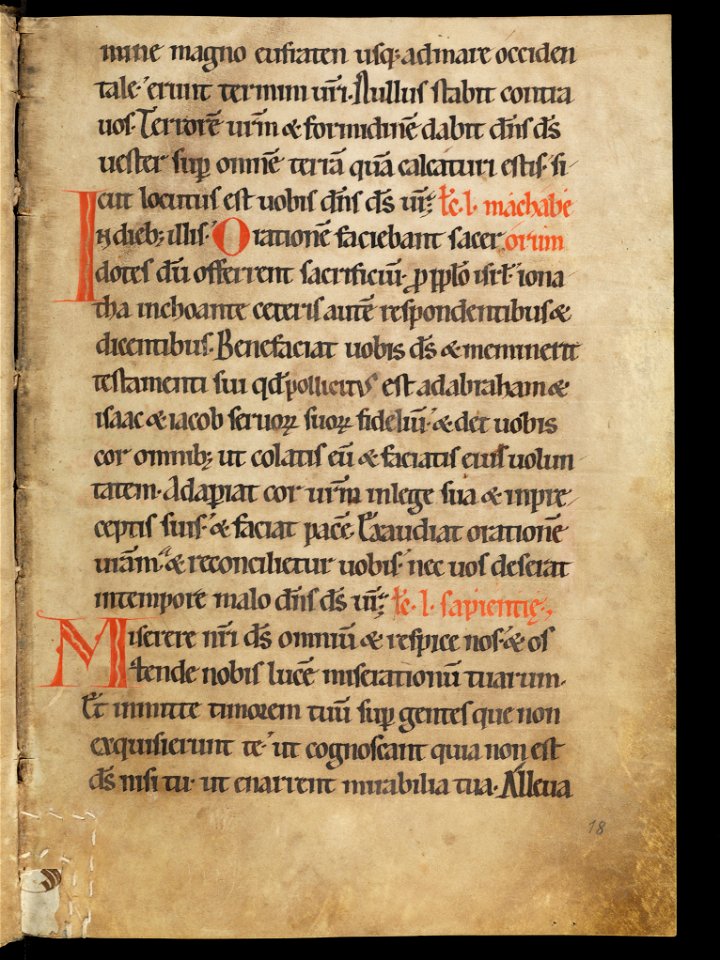 mine magno eufraten usq; ad mare occiden
tale. erunt termini ur̄i. Nullus stabit contra
uos. Terrorē ur̄m & formidinē dabit dn̄s ds̄
uester sup omnē terrā quā calcaturi estis. si
cut locutus est uobis dn̄s ds̄ ur̄; łc. l. machabe
In dieb; illis. Orationē faciebant sacer orum
dotes dū offerrent sacrificiū. pro pplo isrł. iona
tha inchoante ceteris autē respondentibus &
dicentibus. Benefaciat uobis ds̄ & meminerit
testamenti sui qd̄ pollicitus est ad abraham &
isaac & iacob seruoꝝ suoꝝ fideliū. & det uobis
cor omnib; ut colatis eū & faciatis eius uolun
tatem. Adapiat cor ur̄m in lege sua & in pre
ceptis suis. & faciat pacē. Exaudiat orationē
ur̄am. & reconcilietur uobis. nec uos deserat
in tempore malo dn̄s ds̄ ur̄; łc. l. sapientię.
Miserere nr̄i ds̄ omniū & respice nos. & os
tende nobis lucē miserationū tuarum.
Et inmitte timorem tuū sup gentes que non
exquisierunt te. ut cognoscant quia non est
ds̄ nisi tu. ut enarrent mirabilia tua. Alleua
18